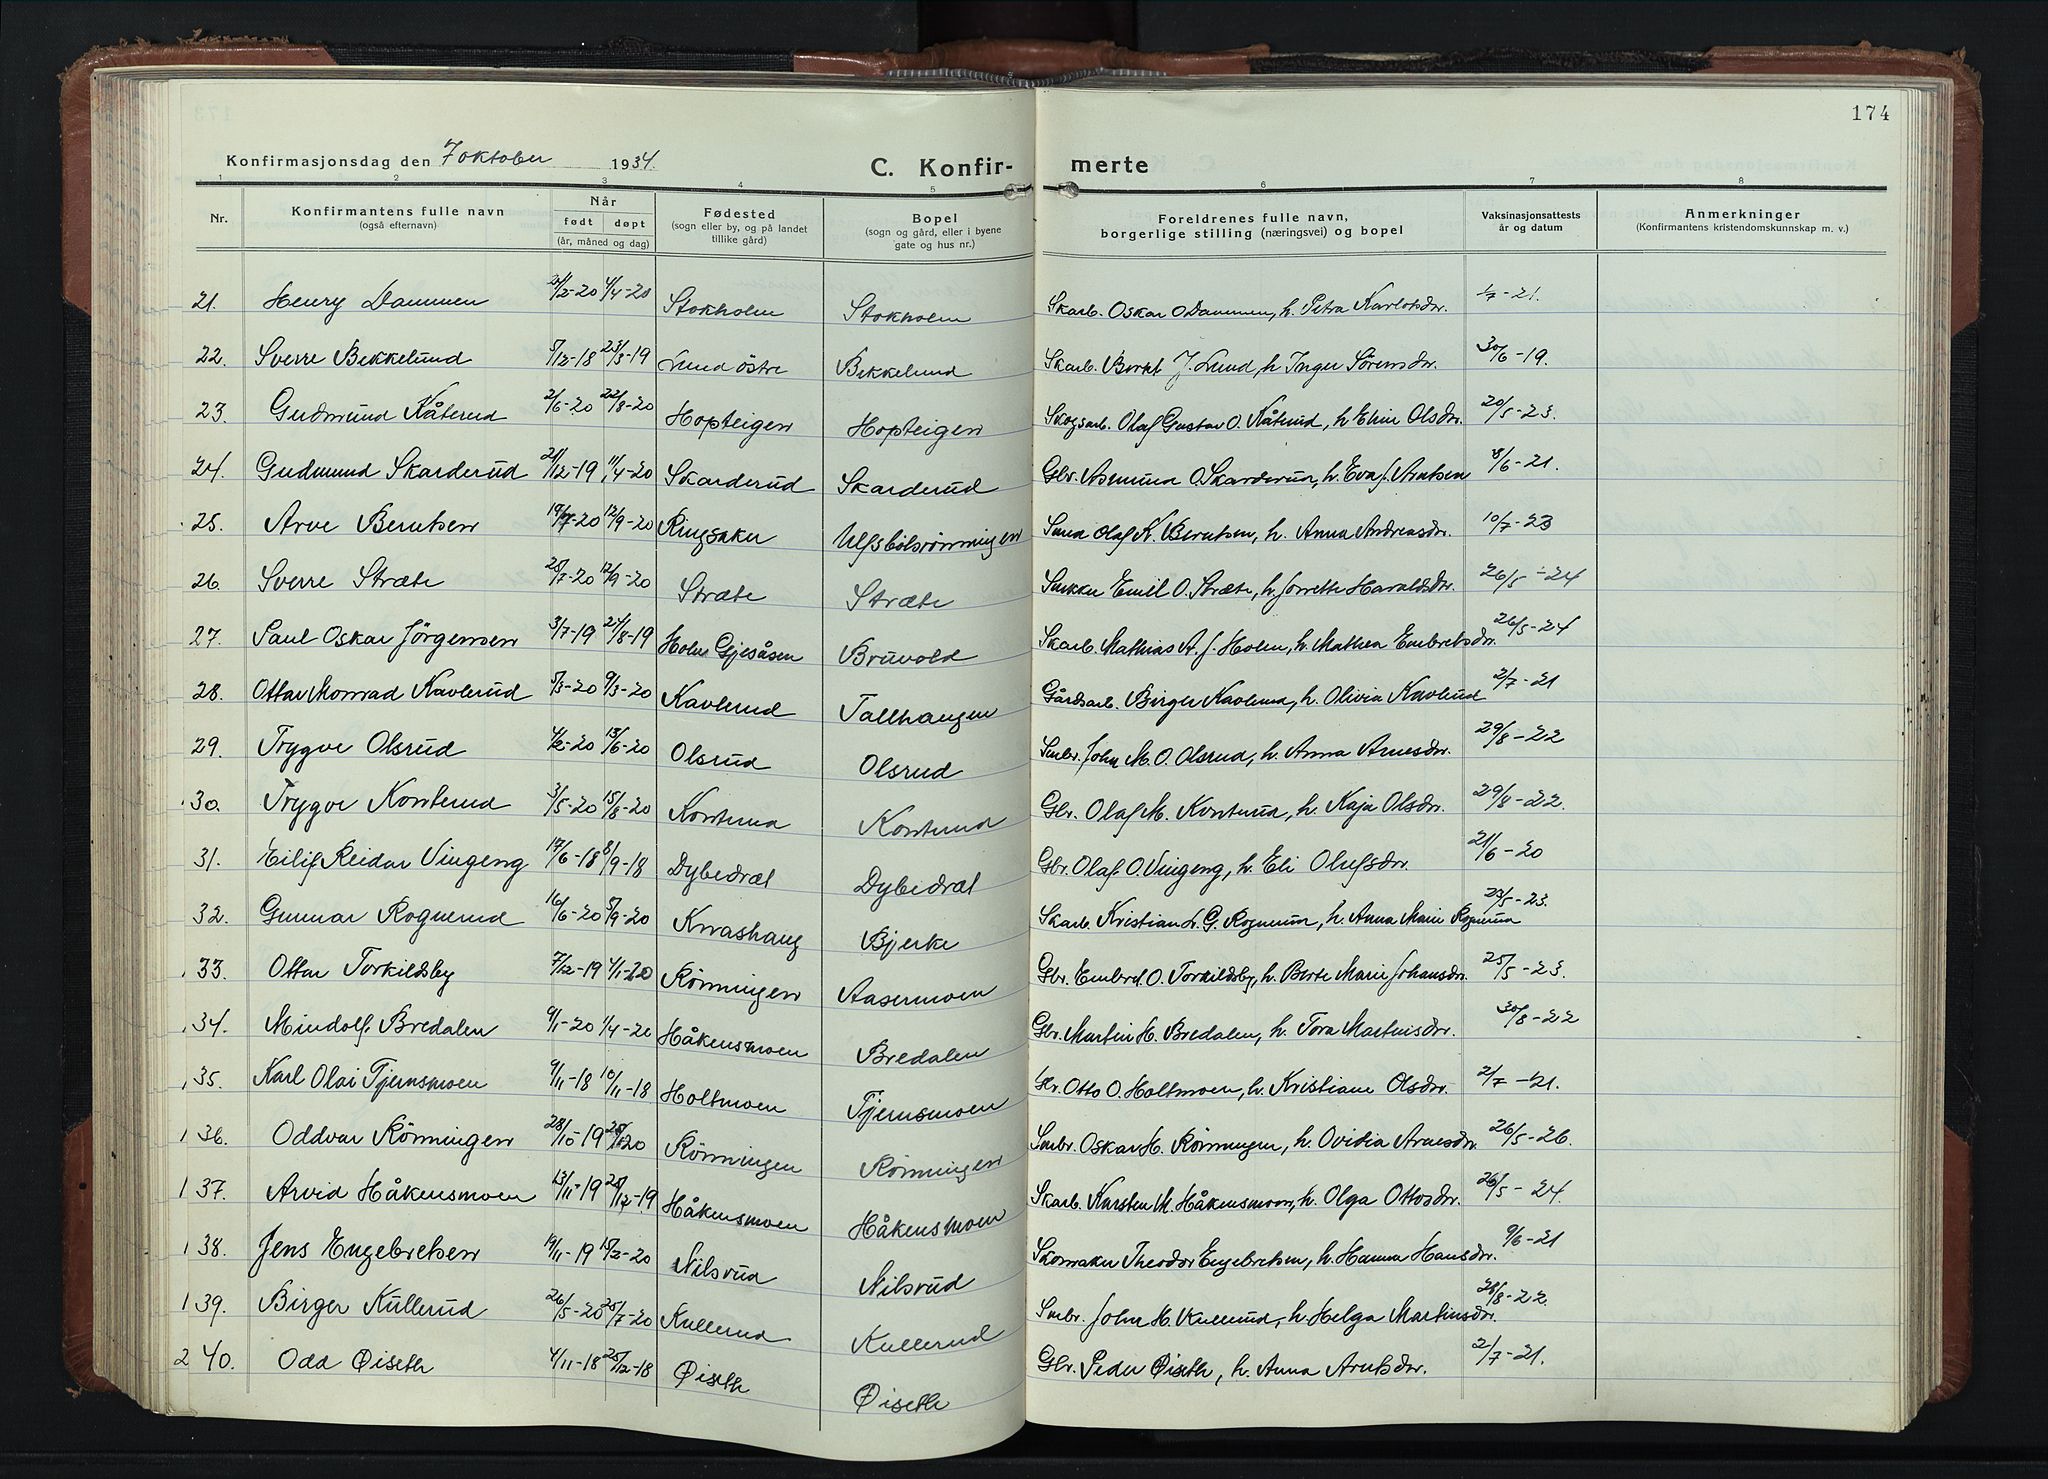 174
Konfirmasjonsdag den 7 oktober 1934.
C. Konfir- merte
1 2 3 4 5 6 7 8
Nr.
Konfirmantens fulle navn
(også efternavn)
Når
født døpt
(år, måned og dag)
Fødested
(sogn eller by, og på landet
tillike gård)
Bopel
(sogn og gård, eller i byene
gate og hus nr.)
Foreldrenes fulle navn,
borgerlige stilling (næringsvei) og bopel
Vaksinasjonsattests
år og datum
Anmerkninger
(Konfirmantens kristendomskunnskap m. v.)
21. Henry Dammen 4/4-20 Stokholm Stokholm Skarb. Oskar O Dammen, h. Petra Karlotsdr. 1/7-21.
22. Sverre Bekkelund 5/12-18 23/3-19 Lund östre Bekkelund Skarb. Bernt J. Lund, h Inger Sörensdr. 30/6-19.
23. Gudmund Kåterud 2/6-20 22/8-20 Hopteigen Hopteigen Skogsarb. Olaf Gustav O. Kåterud, h Elin Olsdr. 20/5-23.
24. Gudmund Skarderud 21/12-19 11/4-20 Skarderud Skarderud Gbr. Asmund O Skarderud, h. Eva J. Arntsen 8/6-21.
25. Arve Berntsen 19/7-20 12/9-20 Ringsaker Ulfsbölsrönningen Olaf K. Berntsen, h. Anna Andreasdr. 10/7-23
26. Sverre Stræte 28/7-20 12/9-20 Stræte Stræte Snekker Emil O. Stræte, h. Jorette Haraldsdr. 26/5-24
27. Paul Oskar Jörgensen 3/7-19 24/8-19 Holm Gjesåsen Bruvold Skarb. Mathias A. J. Holen, h. Mathea Embretsdr. 26/5-24
28. Ottar Monrad Kavlerud 5/3-20 9/3-20 Kavlerud Tallhaugen Gårdsarb. Birger Kavlerud, h. Olivia Kavlerud 2/7-21
29. Trygve Olsrud 4/2-20 13/6-20 Olsrud Olsrud Smbr. John M. O. Olsrud, h. Anna Arnesdr. 29/8-22
30. Trygve Konterud 3/5-20 15/8-20 Konterud Konterud Gbr. Olaf M. Konterud, h. Kaja Olsdr. 29/8-22.
31. Eilif Reidar Vingeng 17/6-18 8/9-18 Dybedræt Dybedræt Gbr. Olaf O. Vingeng, h. Eli Olufsdr. 21/6-20
32. Gunnar Rognerud 16/6-20 5/9-20 Kvashaug Bjerke Skarb. Kristian G. Rognerud, h. Anna Marie Rognerud 23/5-23.
33. Ottar Torkildsby 7/12-19 4/1-20 Rönningen Aasermoen Gbr. Embret O. Torkildsby, h. Berte Marie Johansdr. 25/5-23.
34. Mindolf Bredalen 9/1-20 1/4-20 Håkensmoen Bredalen Gbr. Martin H. Bredalen, h. Tora Martinsdr. 30/8-22
35. Karl Olai Tjernsmoen 9/11-18 10/11-18 Holtmoen Tjernsmoen Gbr. Otto O. Holtmoen, h. Kristiane Olsdr. 2/7-21.
1 36. Oddvar Rönningen 28/10-19 Rönningen Rönningen Smbr. Oskar H. Rönningen, h. Ovidia Arnesdr. 26/5-26.
1 37. Arvid Håkensmoen 13/11-19 28/12-19 Håkensmoen Håkensmoen Skarb. Karsten M. Håkensmoen, h. Olga Ottosdr. 26/5-24.
1 38. Jens Engebretsen 19/11-19 15/2-20 Nilsrud Nilsrud Skomaker Theodor Engebretsen, h. Hanna Hansdr. 9/6-21
1 39. Birger Kullerud 26/5-20 25/7-20 Kullerud Kullerud Smbr. John H. Kullerud, h. Helga Martinsdr. 28/8-22.
2 40. Odd Øiseth 4/11-18 25/12-18 Øiseth Øiseth Gbr. Peder Øiseth, h. Anna Arntsdr. 2/7-21.